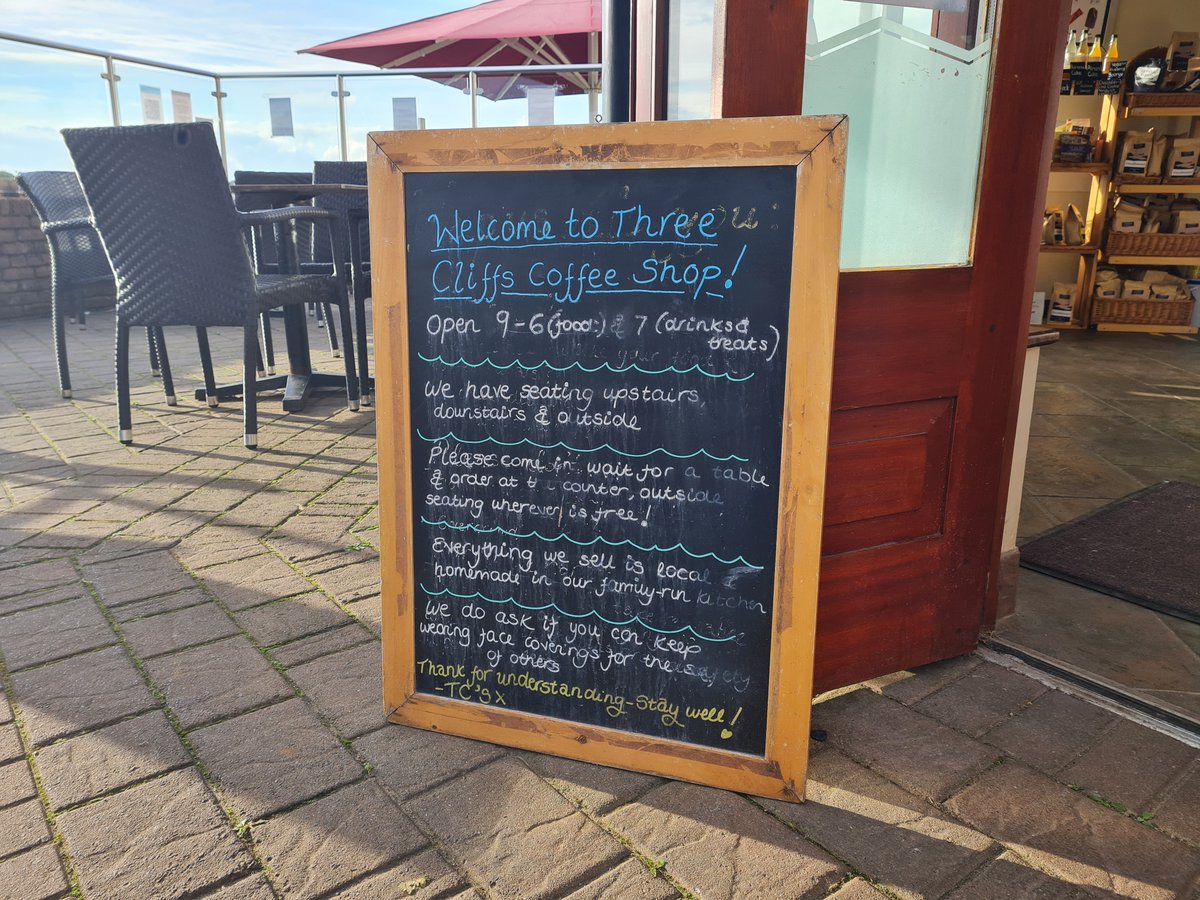 Welcome to Three
Cliffs Coffee Shop!
Open 9-6 (food) & 7 (drinks &
treats)
We have seating upstairs,
downstairs & outside
Please come in wait for a table
& order at the counter, outside
seating wherever is free!
Everything we sell is local /
homemade in our family-run kitchen
We do ask if you can keep
wearing face coverings for the safety
of others
Thank for understanding - Stay well!
-TC's x